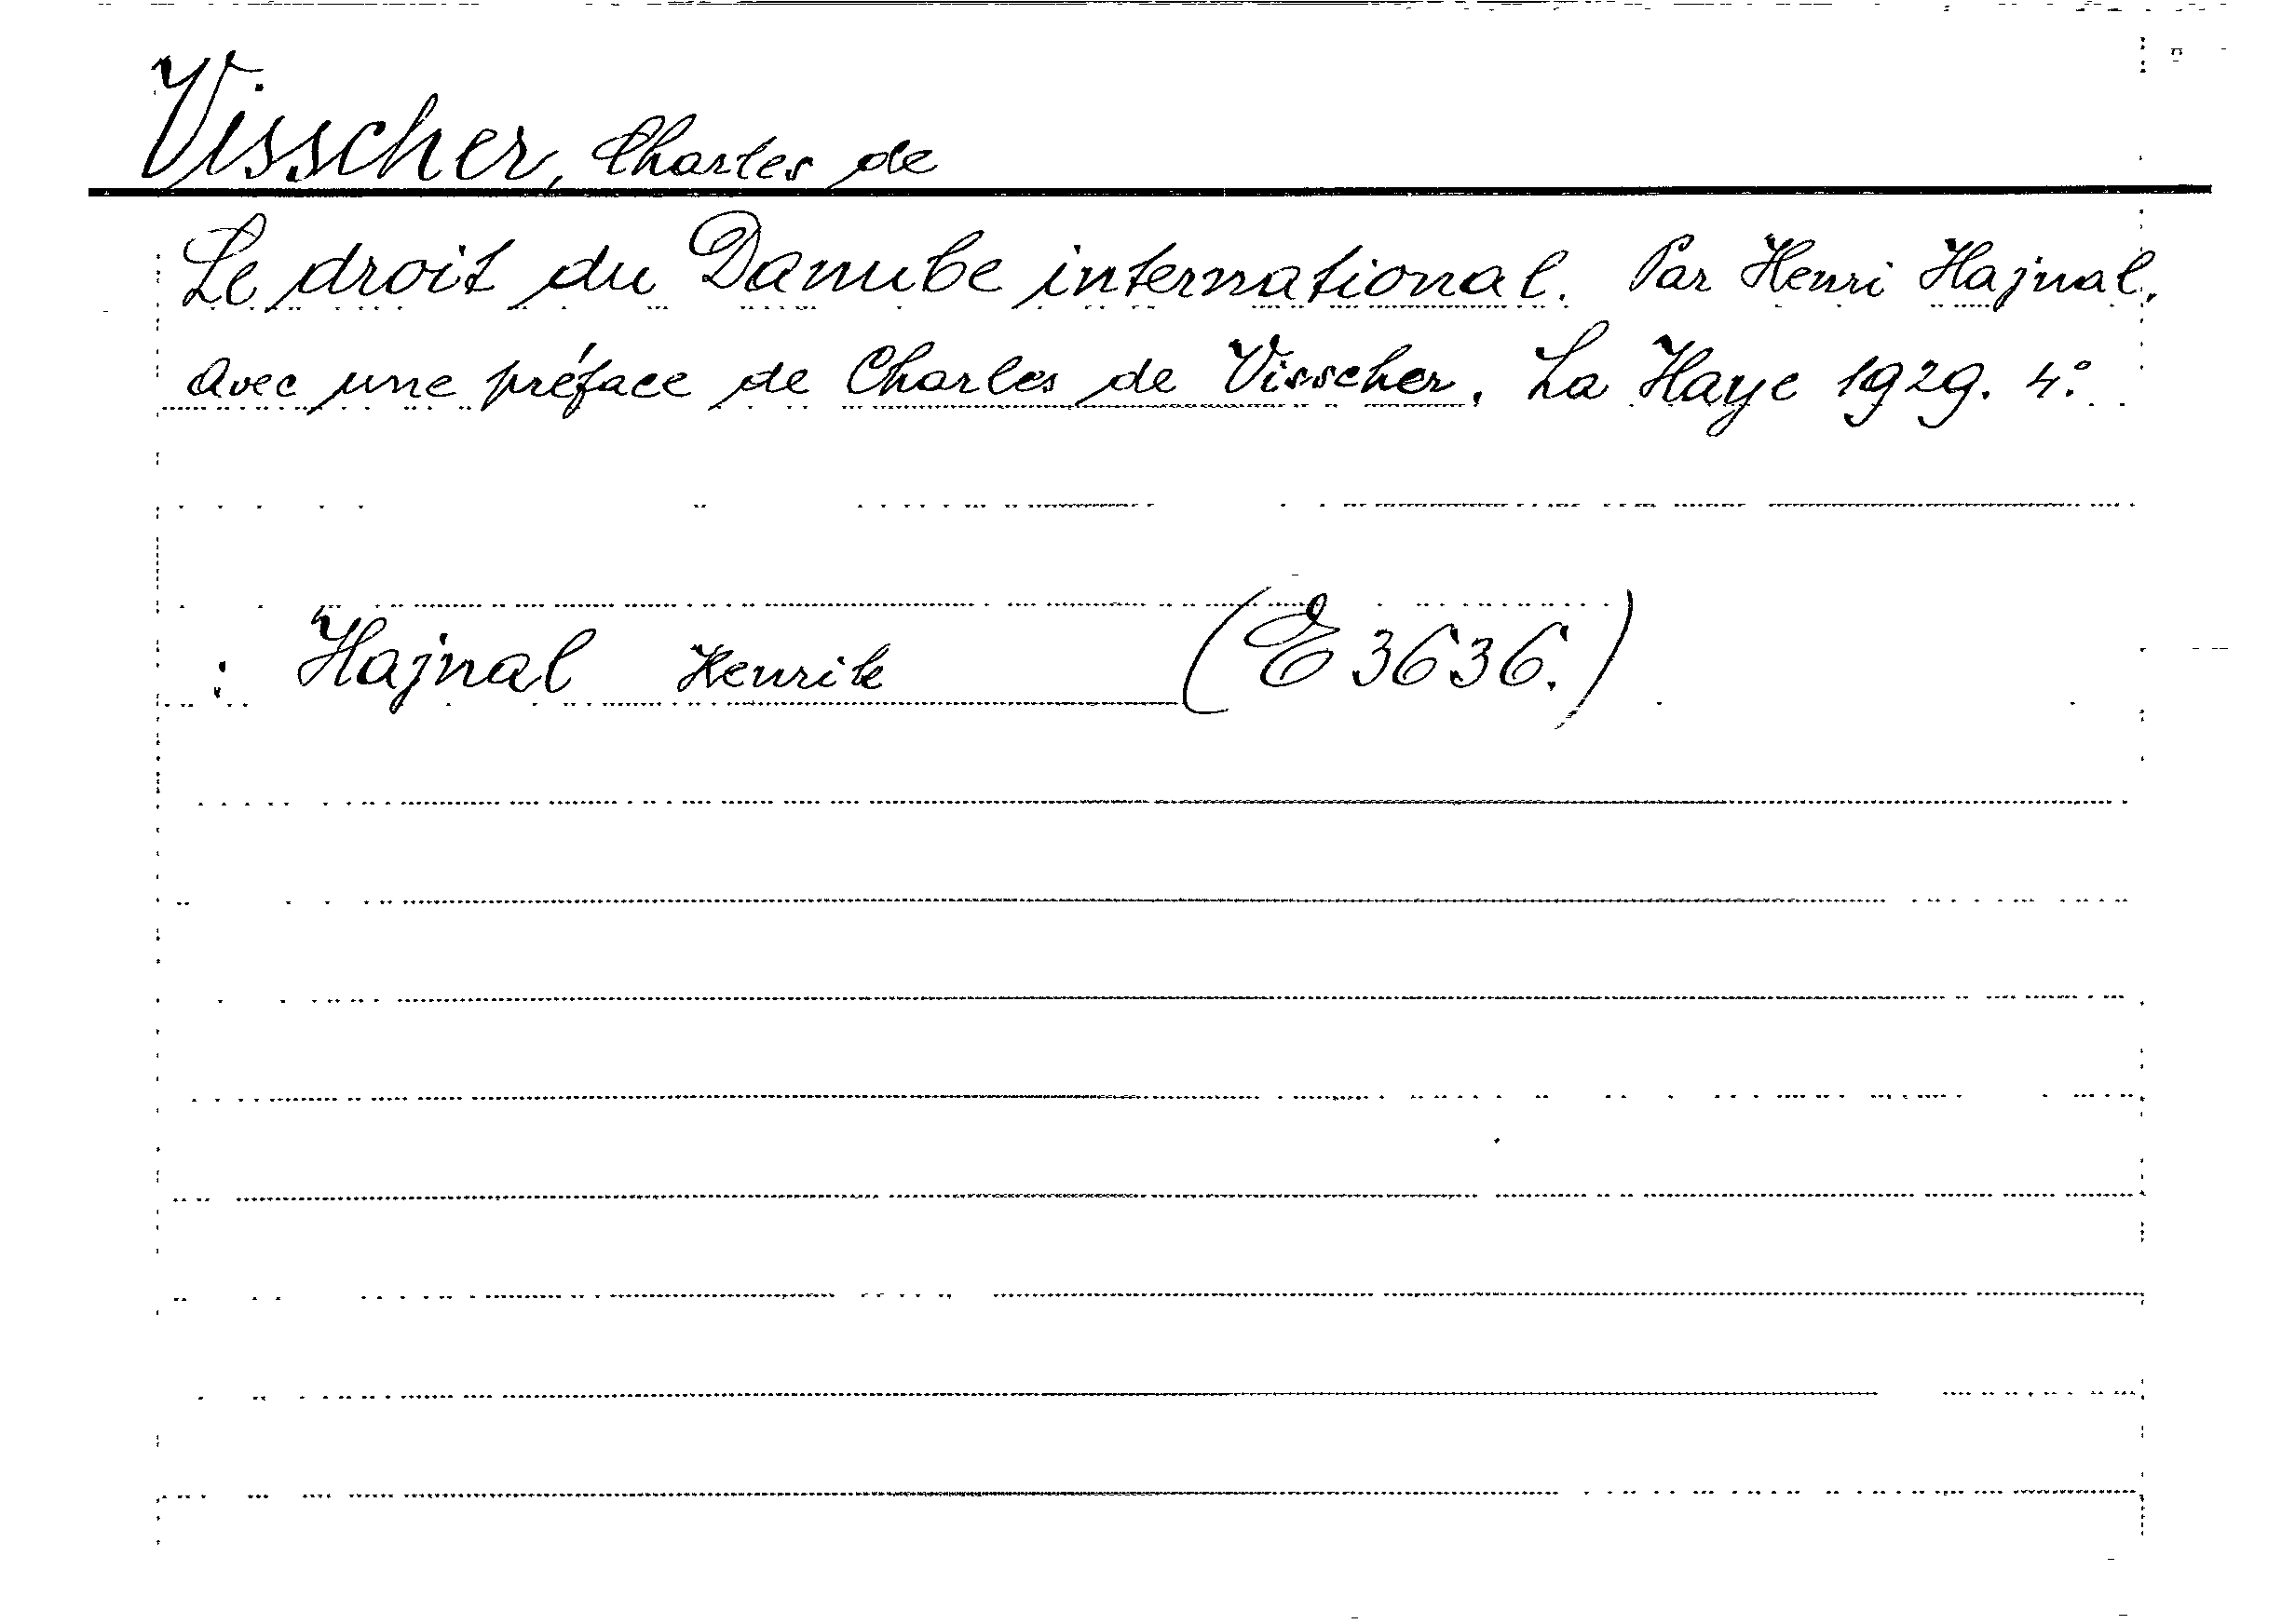 Visscher, Charles de
Le droit du Danube international. Par Henri Hajnal,
avec une préface de Charles de Visscher. La Haye 1929. 4°.
: Hajnal Henrik (E 3636.)